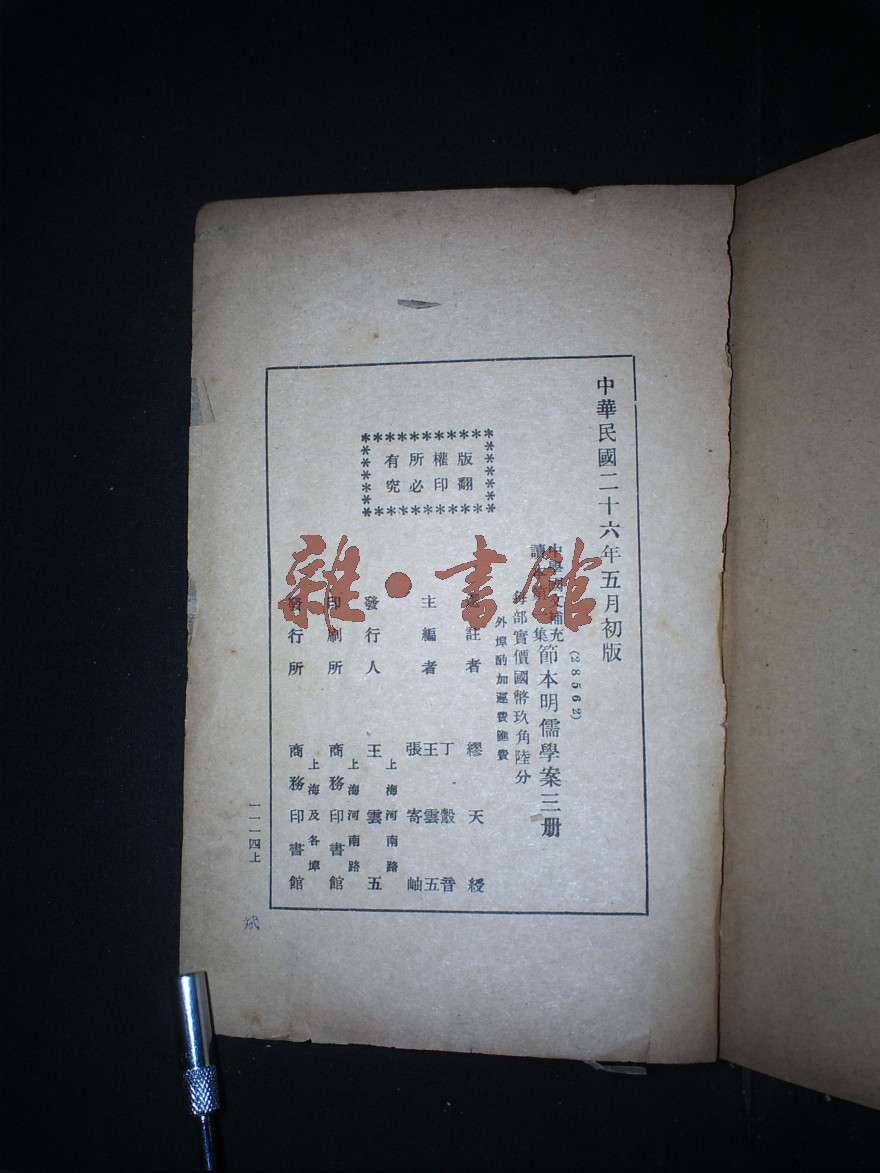 中華民國二十六年五月初版
(28562)
中學國文補充
讀本第一集
節本明儒學案三册
每部實價國幣玖角陸分
外埠酌加運費匯費
版權所有
翻印必究
選註者 繆天綬
主編者 丁瞉音 王雲五 張寄岫
發行人 王雲五
上海河南路
印刷所 商務印書館
上海河南路
發行所 商務印書館
上海及各埠
一一一四上
斌
雜·書館